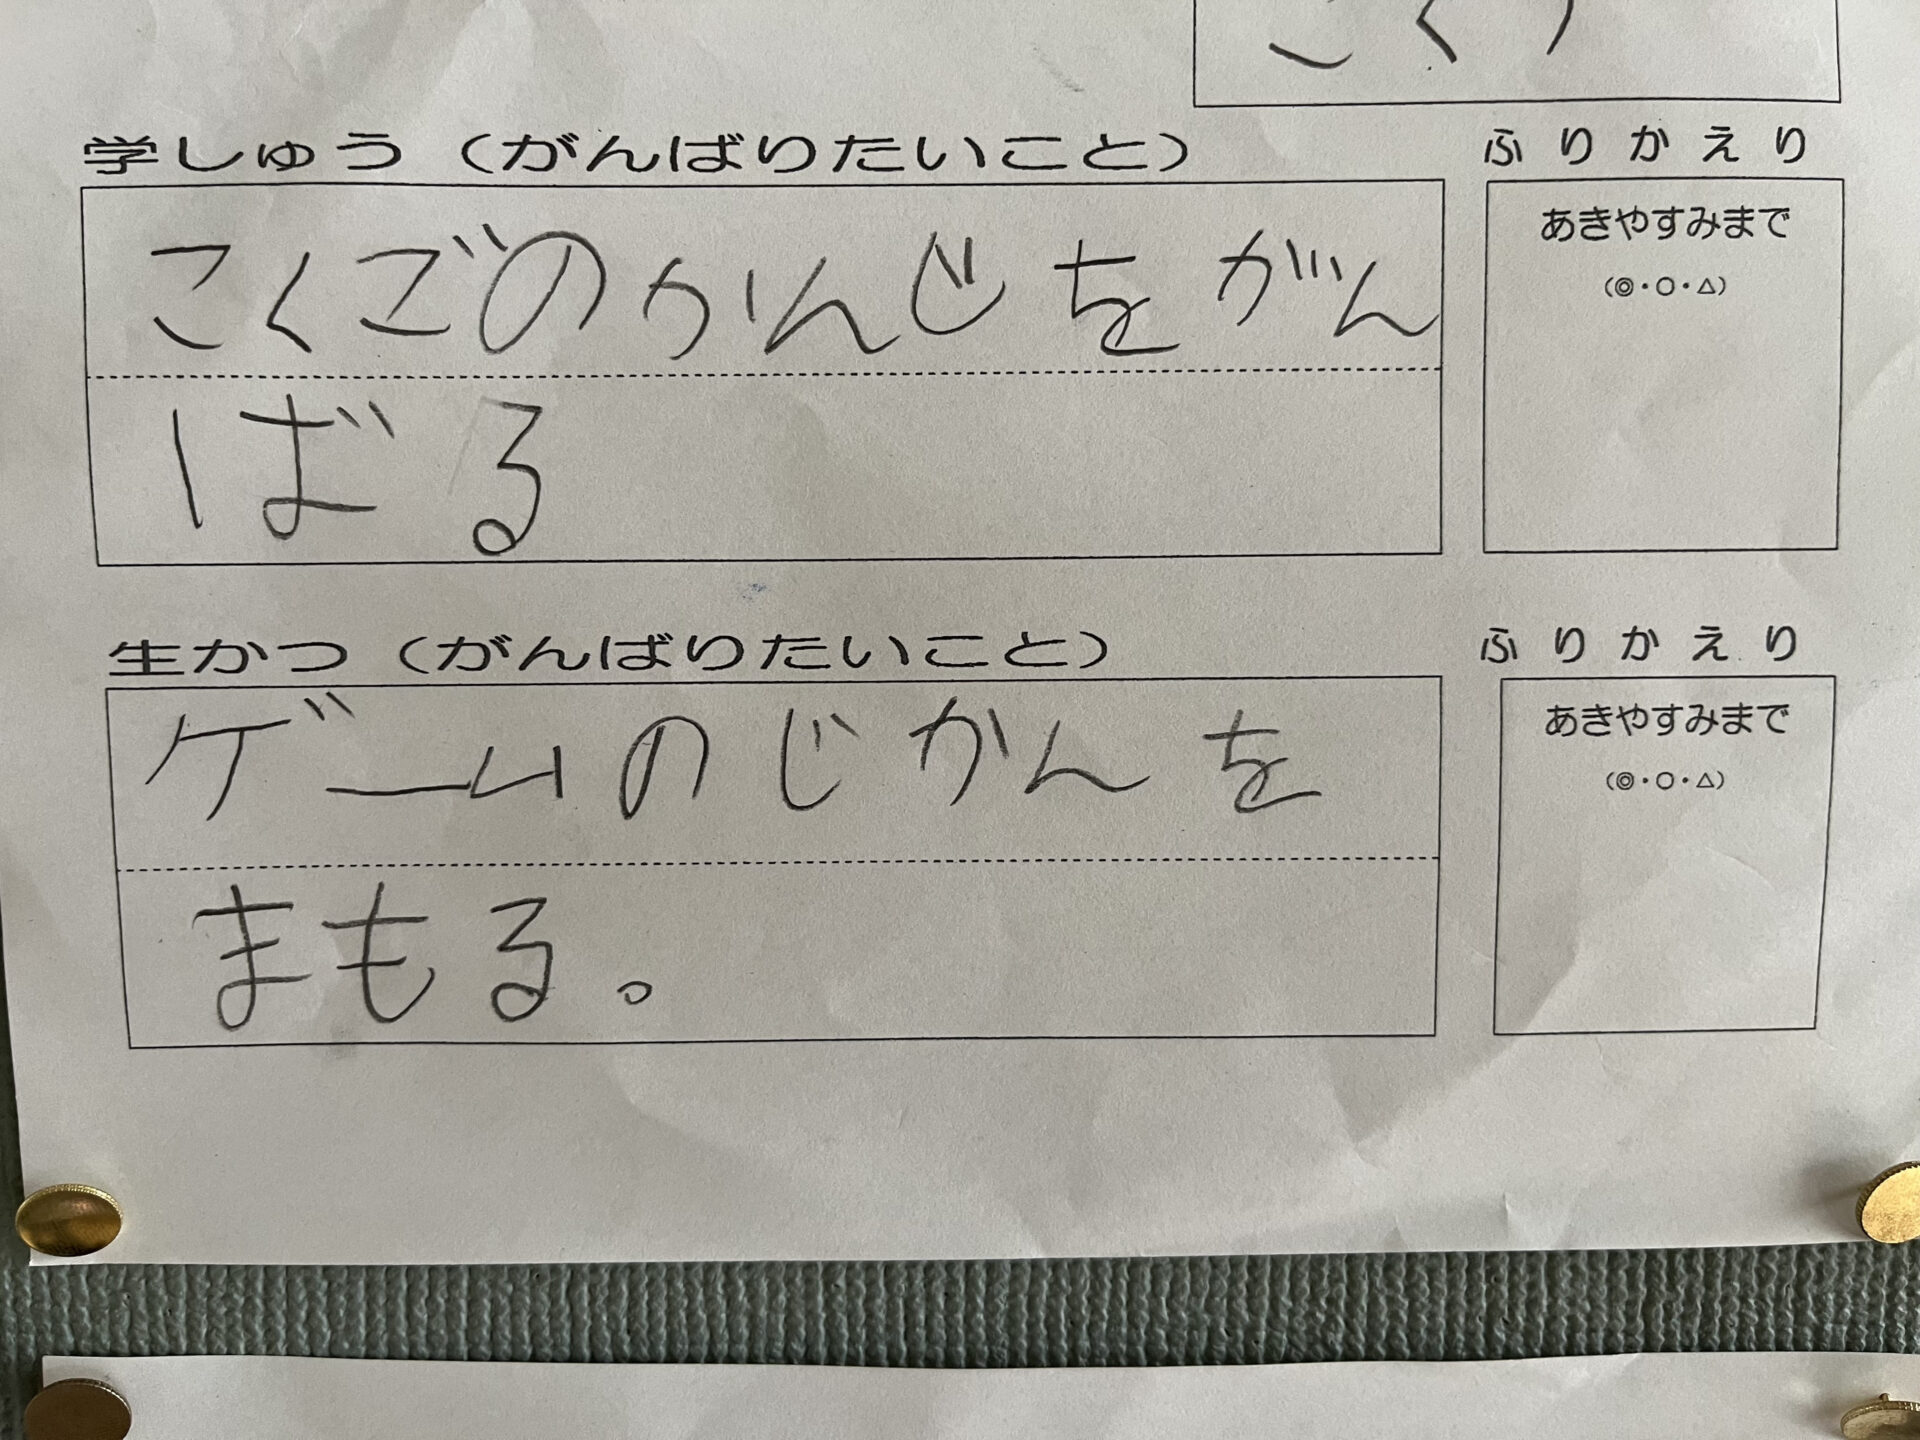 学しゅう（がんばりたいこと）
こくごのかんじをがん
ばる
ふりかえり
あきやすみまで
（◎・○・△）
生かつ（がんばりたいこと）
ゲームのじかんを
まもる。
ふりかえり
あきやすみまで
（◎・○・△）